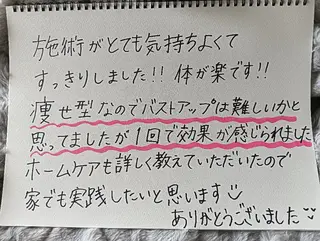 施術がとても気持ちよくて
すっきりしました!! 体が楽です!!
痩せ型なのでバストアップは難しいかと
思ってましたが1回で効果が感じられました
ホームケアも詳しく教えていただいたので
家でも実践したいと思います
ありがとうございました